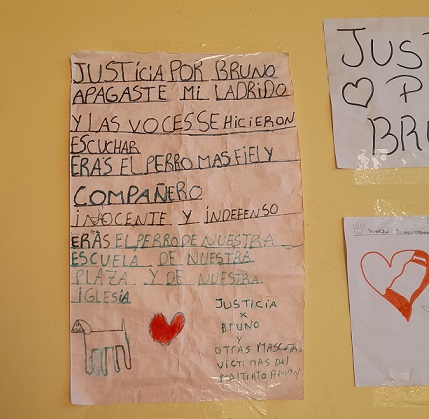 JUSTICIA POR BRUNO
APAGASTE MI LADRIDO
Y LAS VOCES SE HICIERON
ESCUCHAR
ERAS EL PERRO MAS FIEL Y
COMPAÑERO
INOCENTE Y INDEFENSO
ERAS EL PERRO DE NUESTRA
ESCUELA DE NUESTRA
PLAZA Y DE NUESTRA
IGLESIA
JUSTICIA
X
BRUNO
Y
OTRAS MASCOTAS
VICTIMAS DEL
MALTRATO ANIMAL
JUST
P
BR